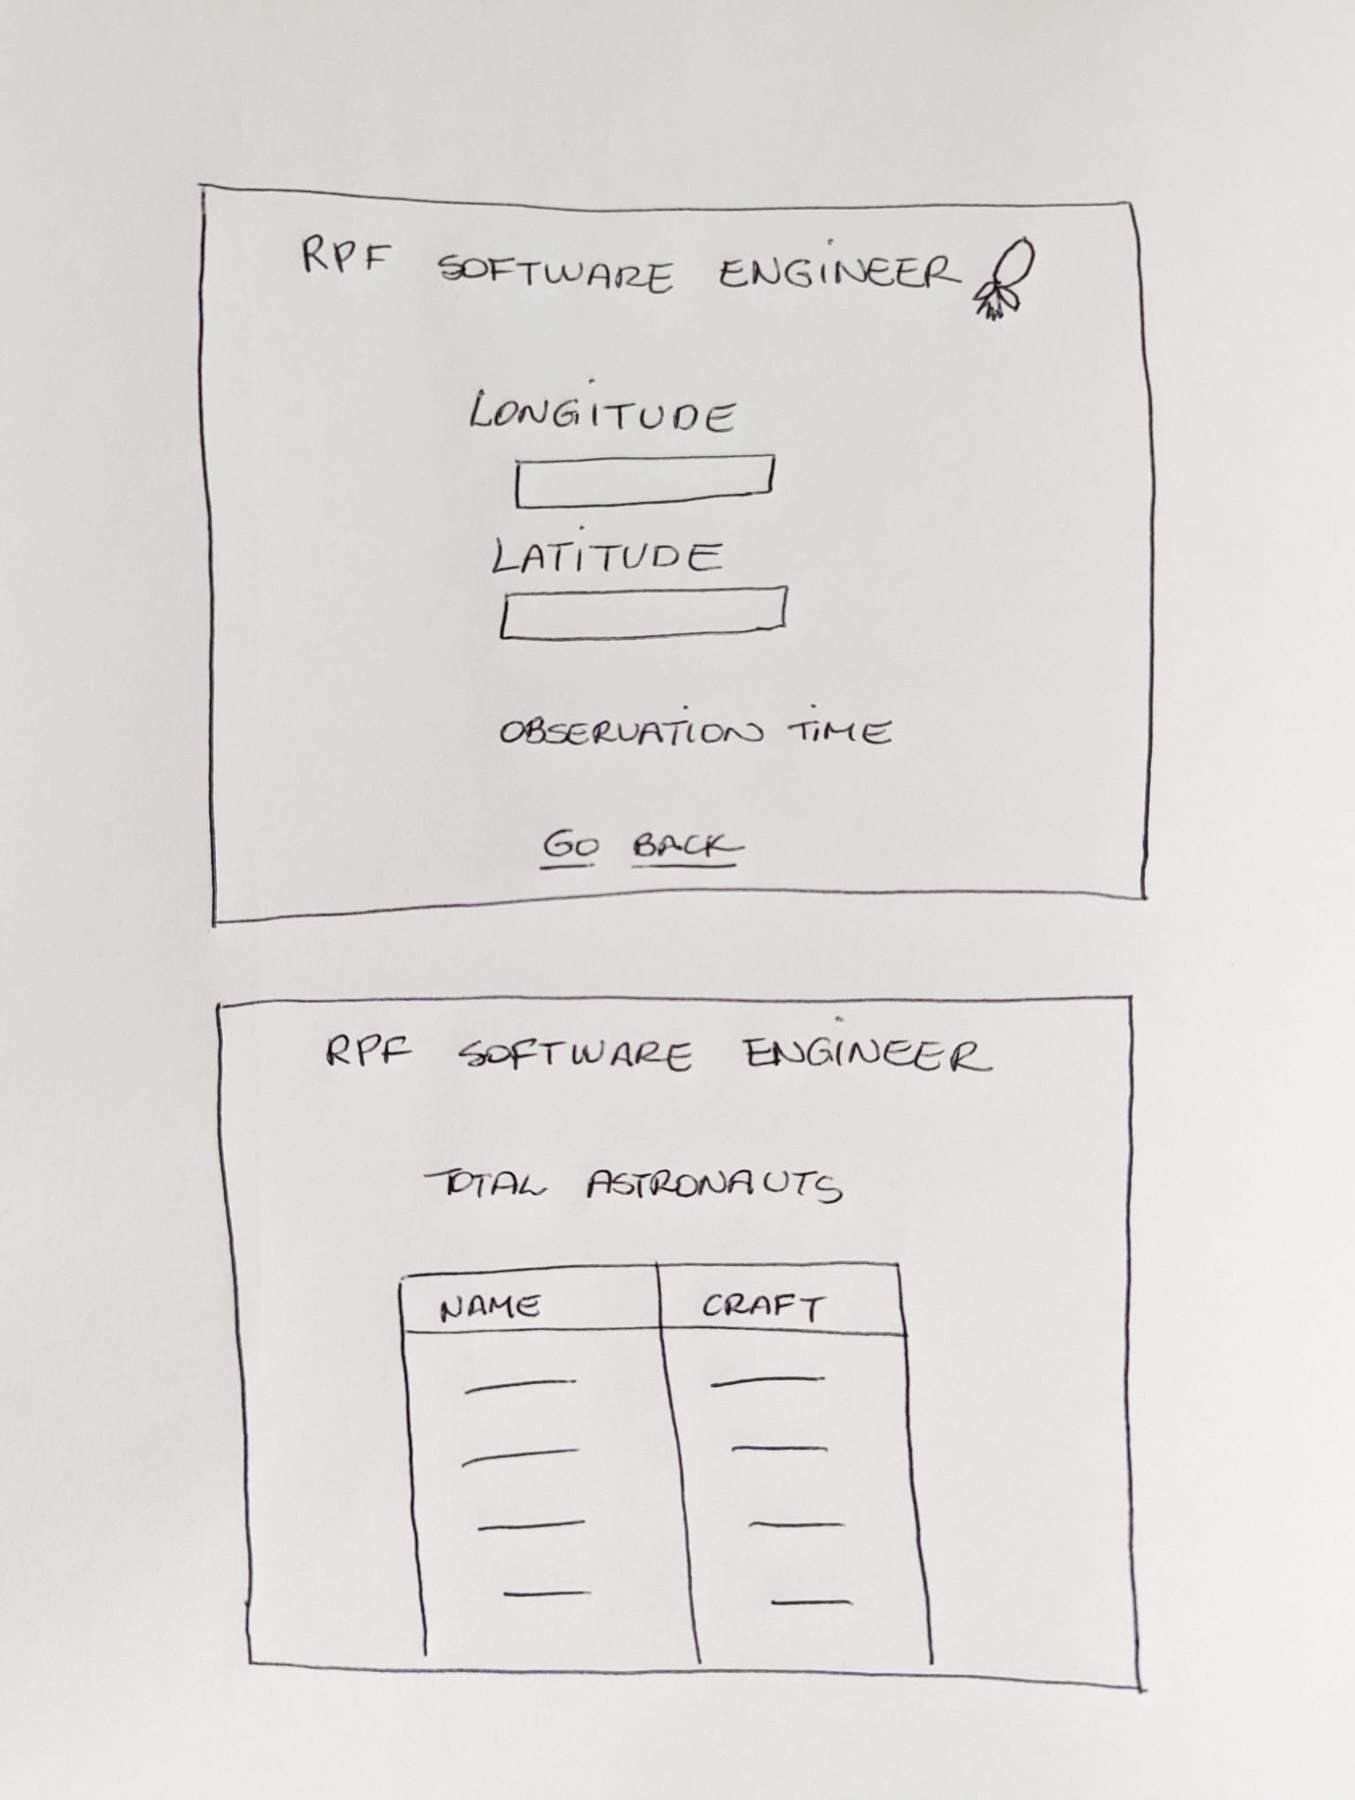 RPF SOFTWARE ENGINEER
LONGITUDE
LATITUDE
OBSERVATION TIME
GO BACK
RPF SOFTWARE ENGINEER
TOTAL ASTRONAUTS
NAME CRAFT